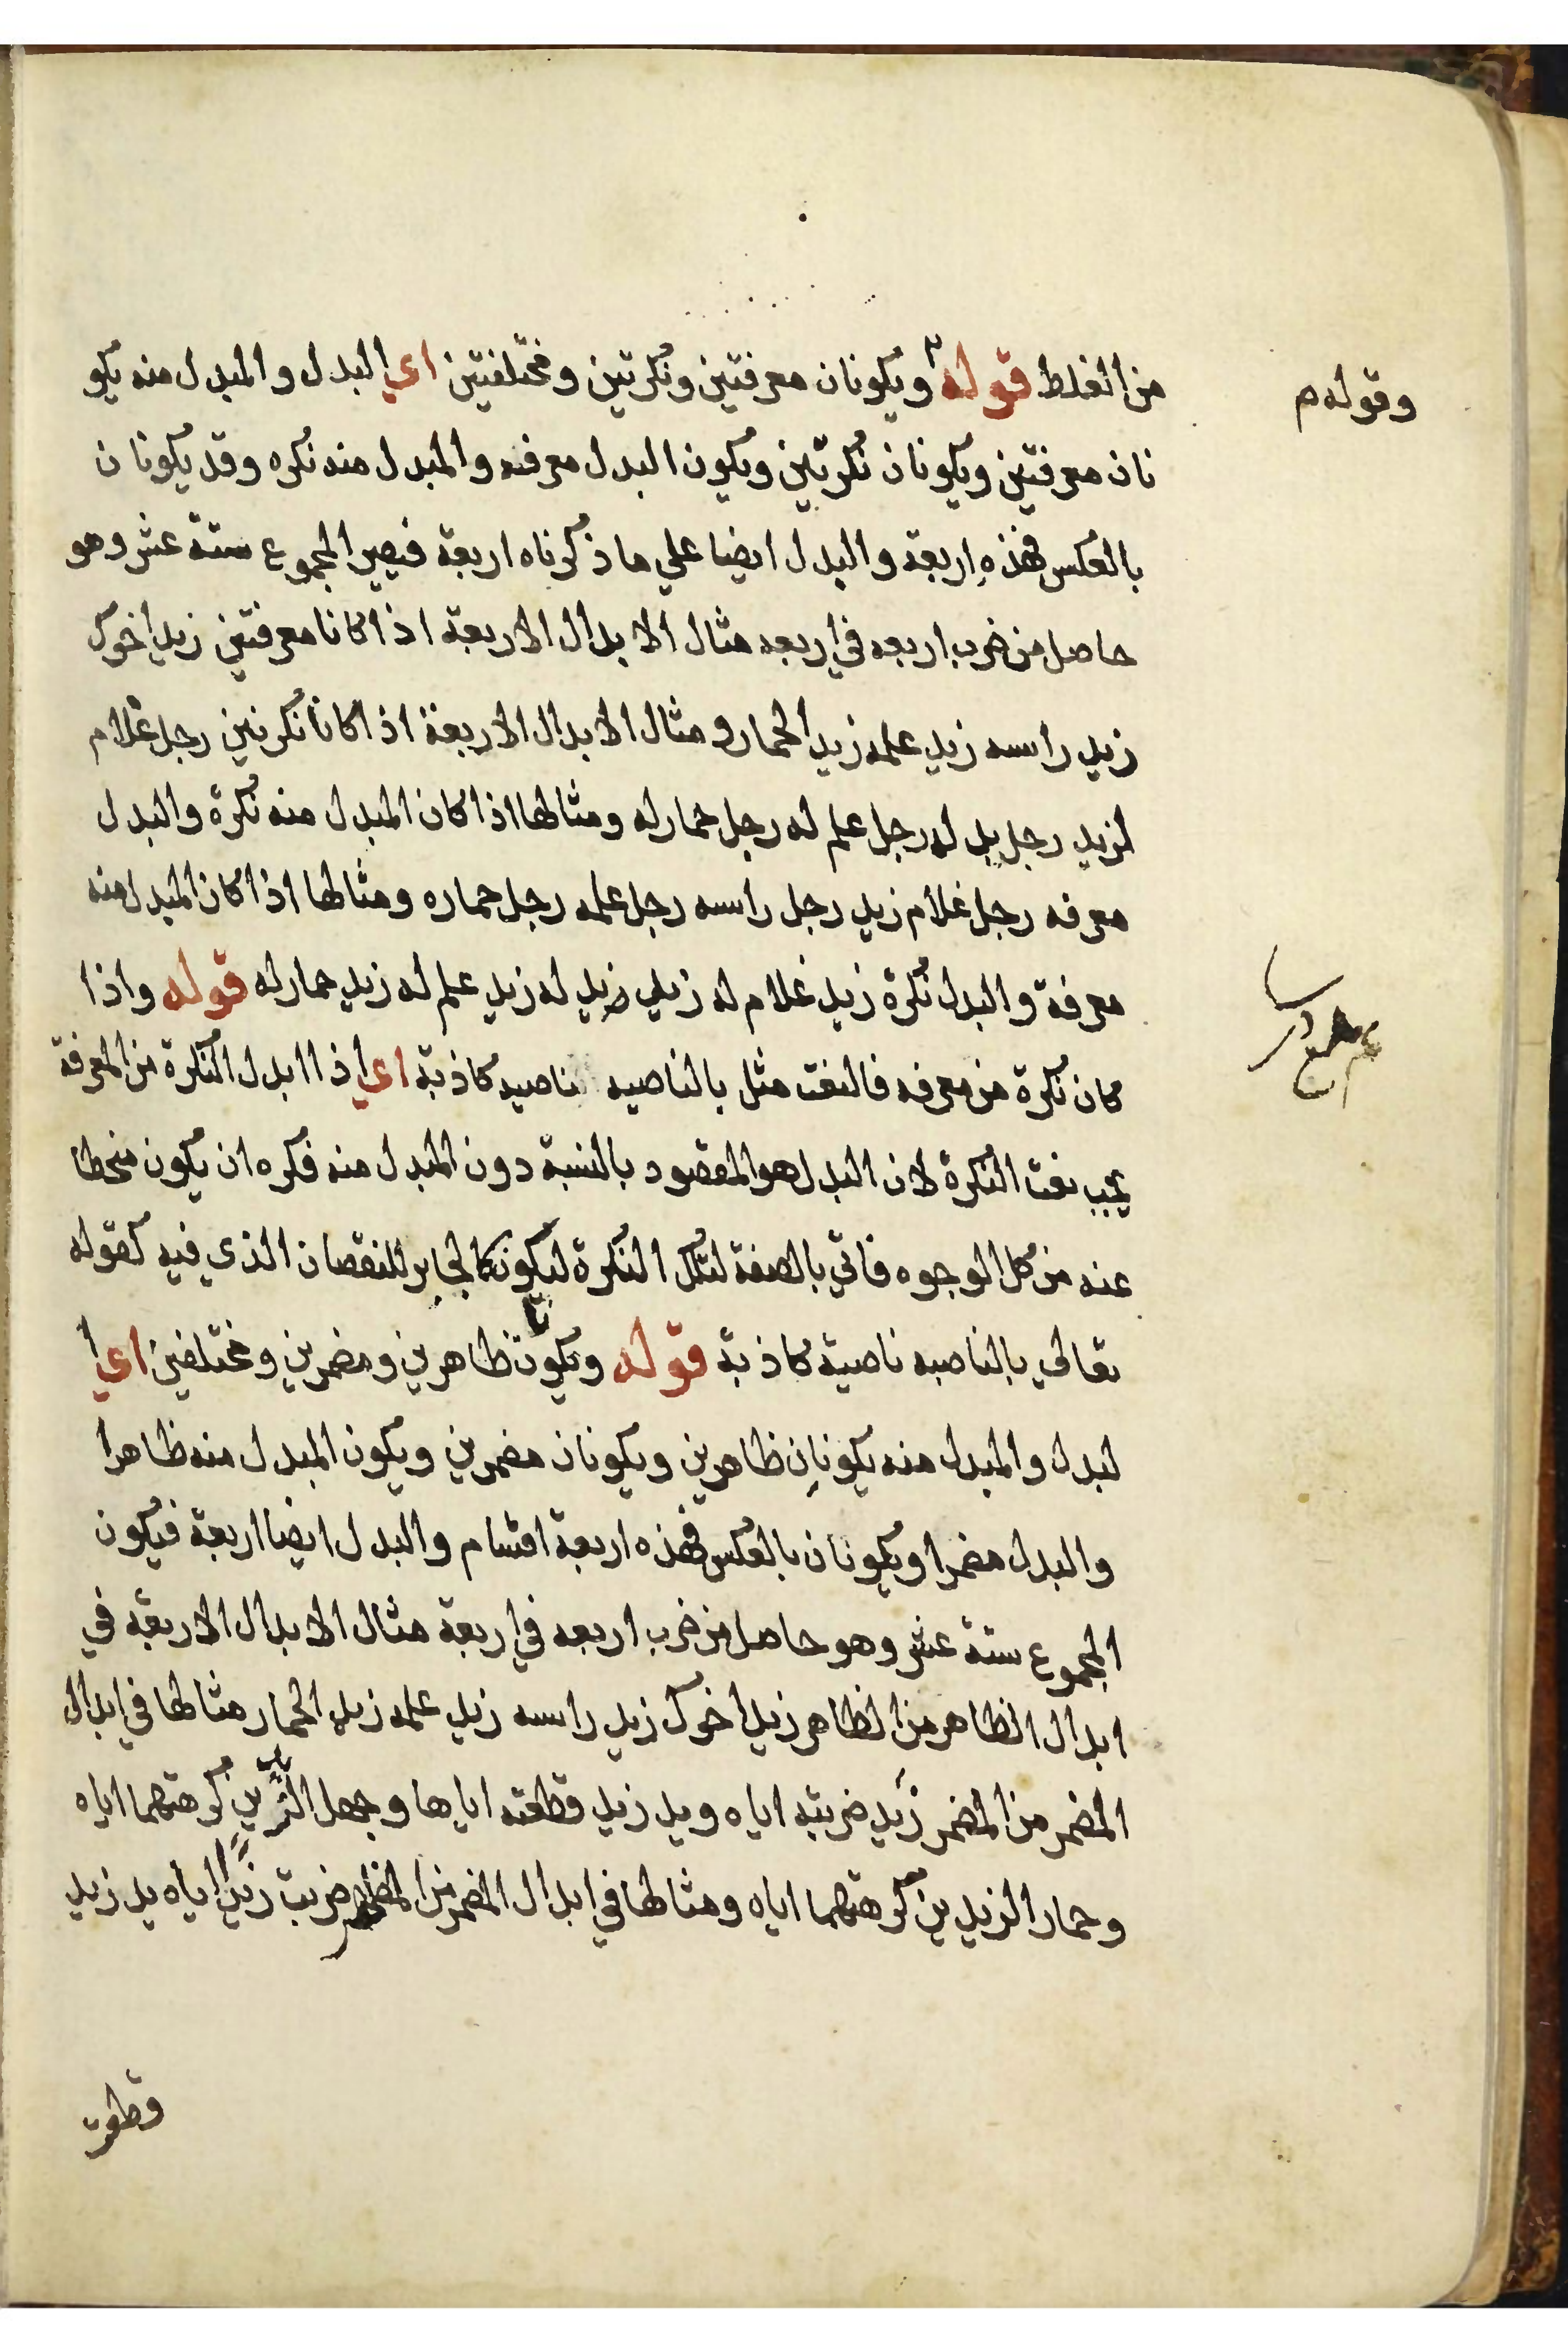 من الغلط قوله ويكونان معرفتين ونكرتين ومختلفتين اي البدل والمبدل منه يكو
وقوله م
نان معرفتين ويكونان نكرتين ويكون البدل معرفه والمبدل منه نكره وقد يكونان
بالعكس فهذه اربعة والبدل ايضا علي ما ذكرناه اربعة فيصير المجموع ستة عشر وهو
حاصل من ضرب اربعه في اربعه مثال الابدال الاربعة اذا كانا معرفتين زيد اخوك
زيد راسه زيد علمه زيد الحمار ومثال الابدال الاربعة اذا كانا نكرتين رجل غلام
لزيد رجل يد له رجل علم له رجل حمار له ومثالها اذا كان المبدل منه نكرة والبدل
معرفه رجل غلام زيد رجل راسه رجل علمه رجل حماره ومثالها اذا كان المبدل منه
معرفة والبدل نكرة زيد غلام له زيد يد له زيد علم له زيد حمار له قوله واذا
كان نكرة من معرفه فالنعت مثل بالناصيه ناصيه كاذبة اي اذا ابدل النكرة من المعرفة
يجب نعت النكرة لان البدل هو المقصود بالنسبة دون المبدل منه فكره ان يكون منحطا
عنه من كل الوجوه فاتي بالصفة لتلك النكرة ليكون كالجابر للنقصان الذي فيه كقوله
تعالي بالناصيه ناصية كاذبة قوله ويكونان ظاهرين ومضمرين ومختلفين اي ا
لبدل والمبدل منه يكونان ظاهرين ويكونان مضمرين ويكون المبدل منه ظاهرا
والبدل مضمرا ويكونان بالعكس فهذه اربعة اقسام والبدل ايضا اربعة فيكون
المجموع ستة عشر وهو حاصل من ضرب اربعه في اربعة مثال الابدال الاربعة في
ابدال الظاهر من الظاهر زيد اخوك زيد راسه زيد علمه زيد الحمار مثالها في ابدال
المضمر من المضمر زيد ضربته اياه ويد زيد قطعته اياها وجهل الزيدين كرهتهما اياه
وحمار الزيدين كرهتهما اياه ومثالها في ابدال المضمر من المظهر ضربت زيدا اياه يد زيد
قطعت